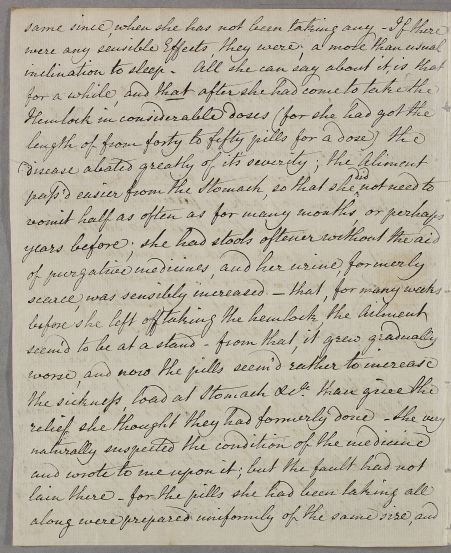 same since, when she has not been taking any - If there
were any sensible Effects, they were; a more than usual
inclination to sleep - All she can say about it, is that
for a while, and that after she had come to take the
Hemlock in considerable doses (for she had got the
length of from forty to fifty pills for a dose) the
Disease abated greatly of its severity; the Aliment
pass'd easier from the Stomach, so that she did not need to
vomit half as often as for many months, or perhaps
years before; she had stools oftener without the aid
of purgative medicines, and her urine, formerly
scarce, was sensibly increased - that, for many weeks
before she left off taking the hemlock the Ailment
seem'd to be at a stand - from that, it grew gradually
worse, and now the pills seem'd rather to increase
the sickness, load at Stomach &ca. than give the
relief she thought they had formerly done - she very
naturally suspected the condition of the medicine
and wrote to me upon it; but the fault had not
lain there - for the pills she had been taking all
along were prepared uniformly of the same size, and